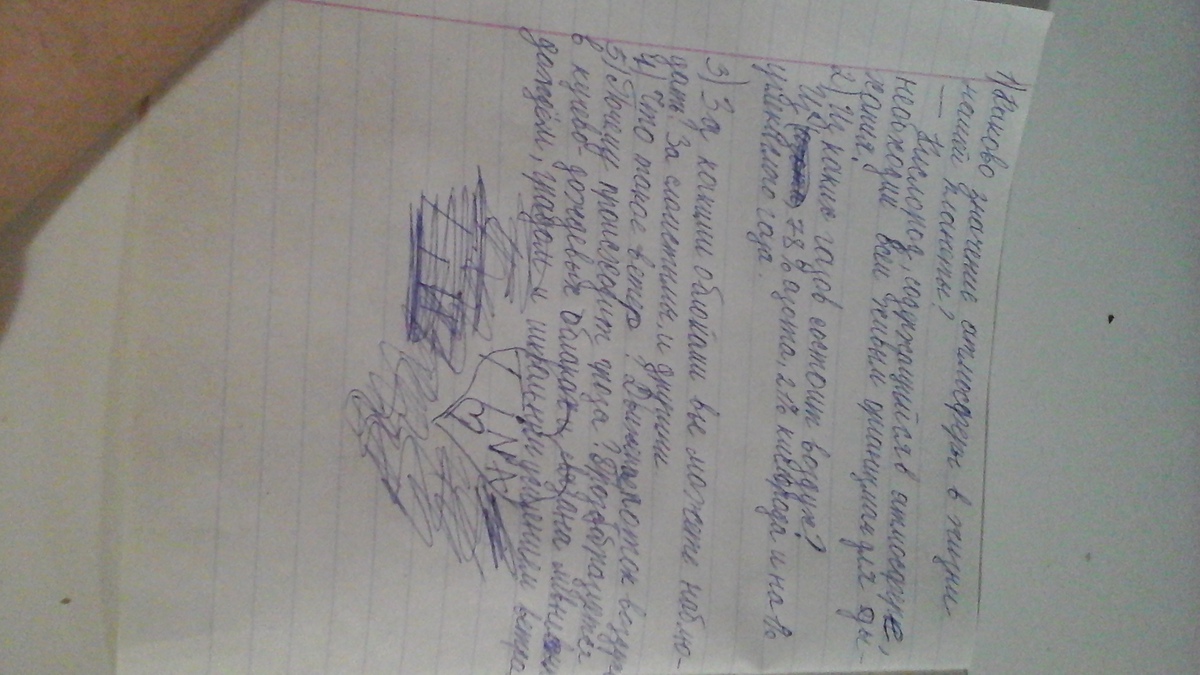 1) Каково значение атмосферы в жизни
нашей планеты?
— Кислород, содержащийся в атмосфере,
необходим всем живым организмам для ды-
хания.
2) Из каких газов состоит воздух?
Из 78% азота, 21% кислорода и на 1%
углекислого газа.
3) За какими облаками вы можете наблю-
дать. За слоистыми и другими
4) Что такое ветер? Движ поток воздух
5) Почему происходит гроза? Гроза образуется
в кучево-дождевых облаках
дождём, градом и шквальным усилением ветра